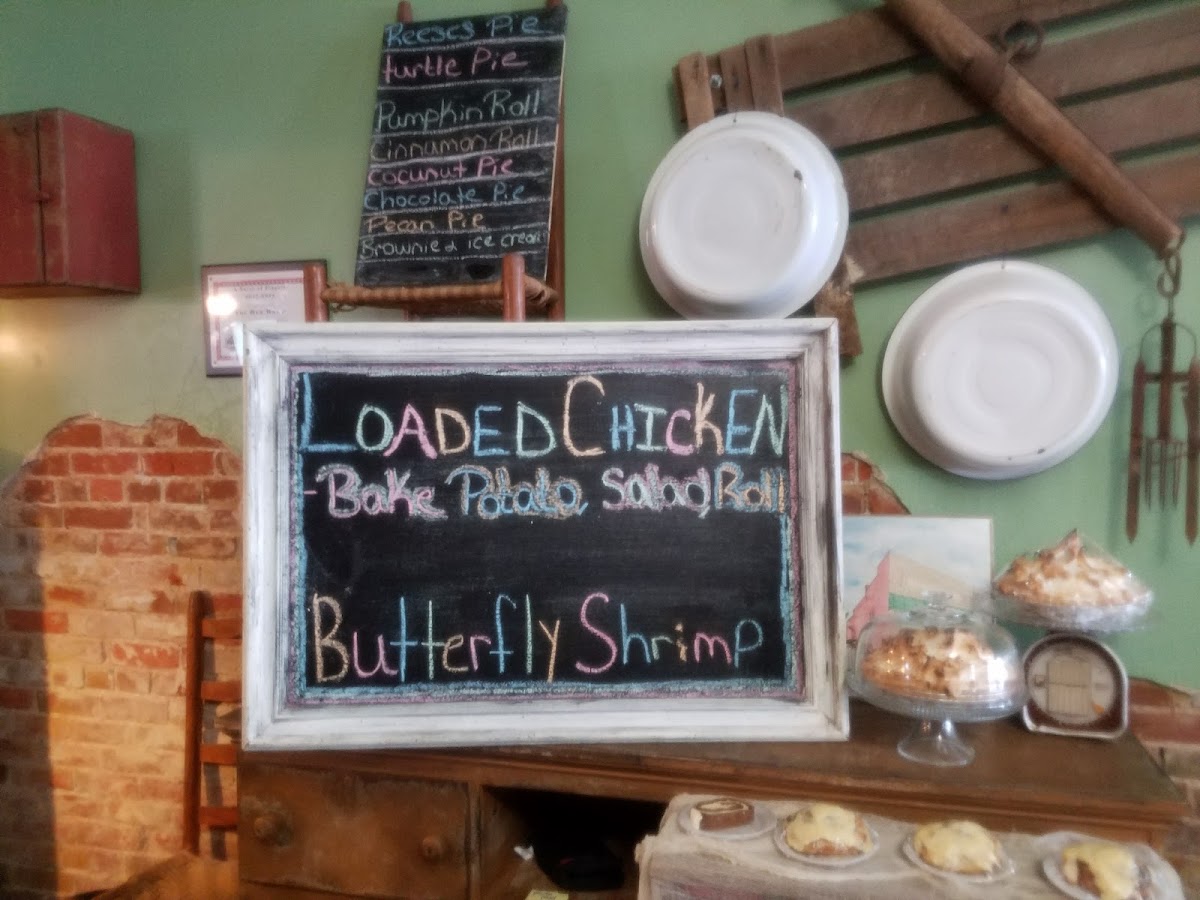 Reeses Pie
turtle Pie
Pumpkin Roll
Cinnamon Roll
cocunut Pie
Chocolate Pie
Pecan Pie
Brownie & ice cream
LOADED CHICKEN
-Bake Potato, Salad, Roll
Butterfly Shrimp